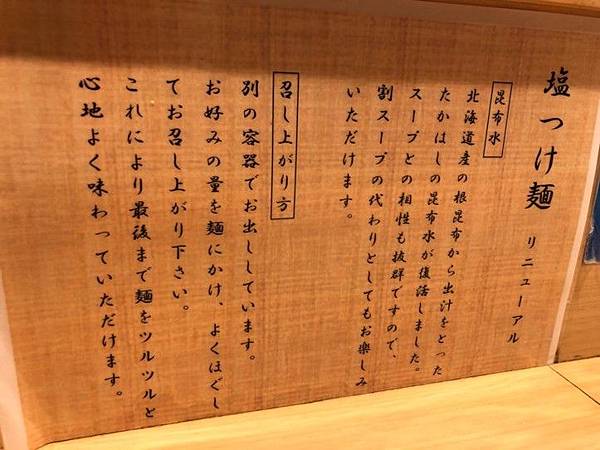 塩つけ麺 リニューアル
昆布水
北海道産の根昆布から出汁をとった
たかはしの昆布水が復活しました。
スープとの相性も抜群ですので、
割スープの代わりとしてもお楽しみ
いただけます。
召し上がり方
別の容器でお出ししています。
お好みの量を麺にかけ、よくほぐし
てお召し上がり下さい。
これにより最後まで麺をツルツルと
心地よく味わっていただけます。